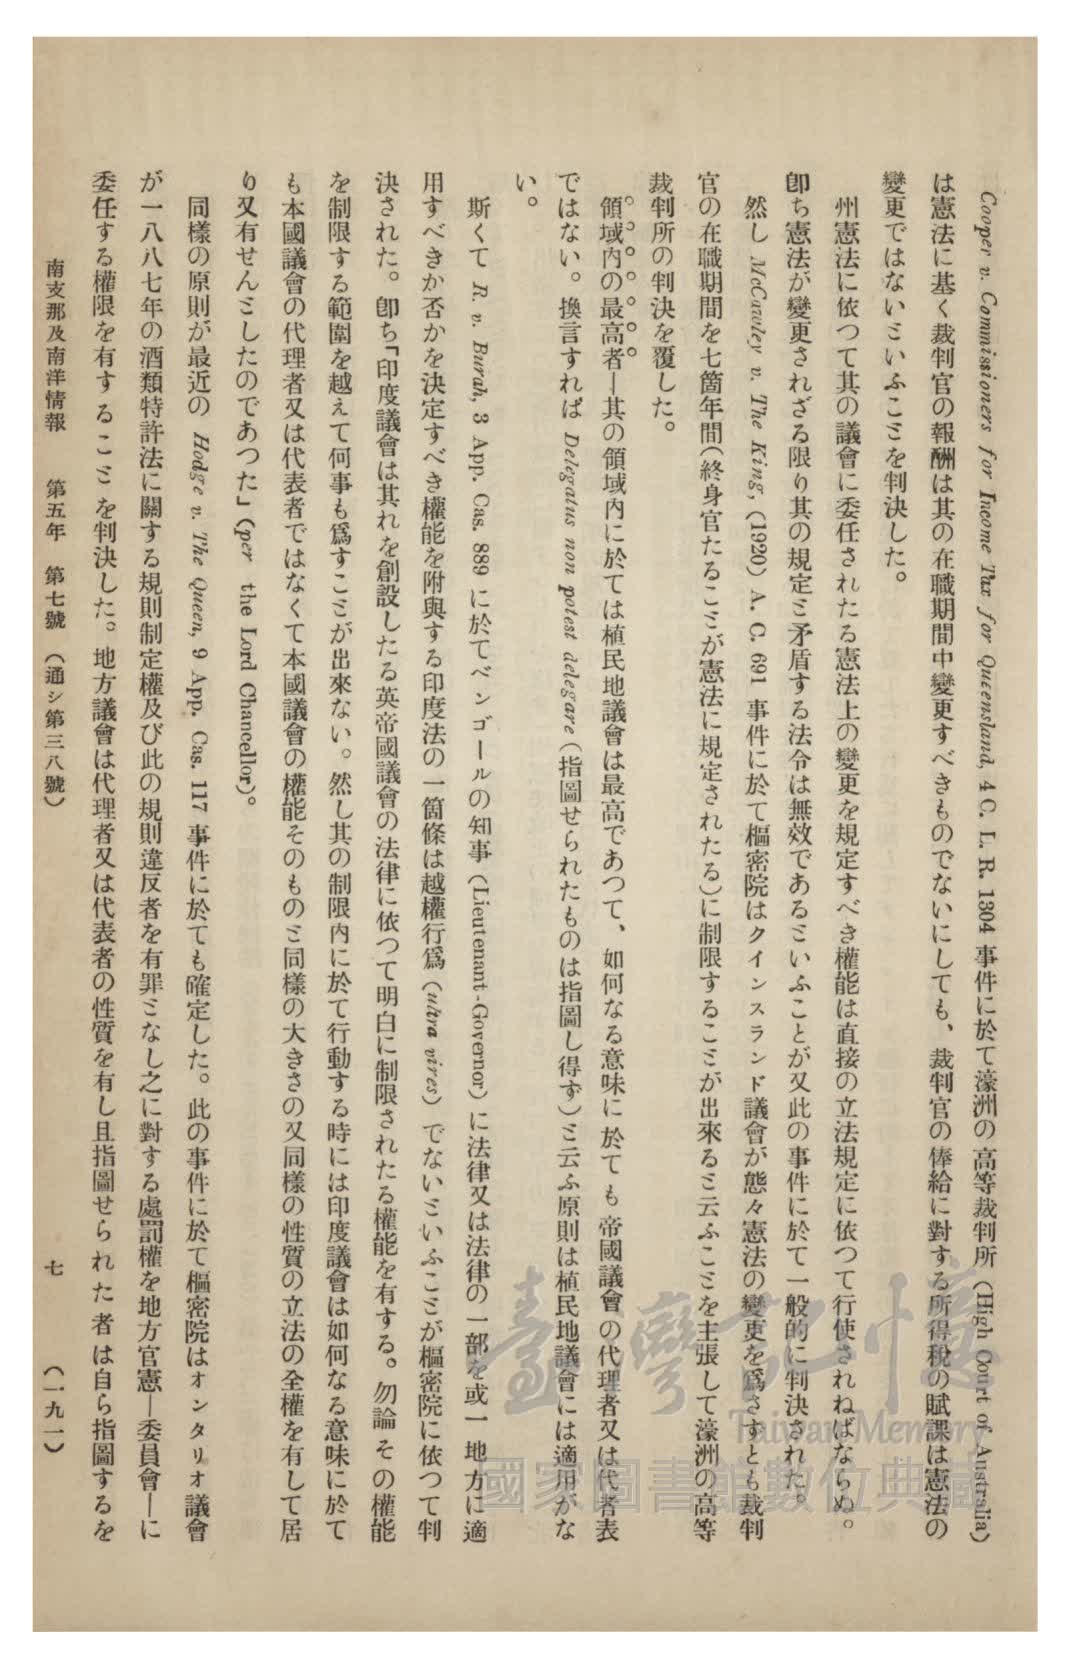 Cooper v. Commissioners for Income Tax for Queensland, 4 C. L. R. 1304 事件に於て濠洲の高等裁判所 (High Court of Australia)
は憲法に基く裁判官の報酬は其の在職期間中變更すべきものでないにしても、裁判官の俸給に對する所得稅の賦課は憲法の
變更ではないといふことを判決した。
州憲法に依つて其の議會に委任されたる憲法上の變更を規定すべき權能は直接の立法規定に依つて行使されねばならぬ。
卽ち憲法が變更されざる限り其の規定と矛盾する法令は無效であるといふことが又此の事件に於て一般的に判決された。
然し McCawley v. The King, (1920) A. C. 691 事件に於て樞密院はクインスランド議會が態々憲法の變更を爲さずとも裁判
官の在職期間を七箇年間(終身官たることが憲法に規定されたる)に制限することが出來ると云ふことを主張して濠洲の高等
裁判所の判決を覆した。
領域內の最高者―其の領域內に於ては植民地議會は最高であつて、如何なる意味に於ても帝國議會の代理者又は代者表
ではない。換言すれば Delegatus non potest delegare (指圖せられたものは指圖し得ず)と云ふ原則は植民地議會には適用がな
い。
斯くて R. v. Burah, 3 App. Cas. 889 に於てベンゴールの知事 (Lieutenant-Governor) に法律又は法律の一部を或一地方に適
用すべきか否かを決定すべき權能を附與する印度法の一箇條は越權行爲 (ultra vires) でないといふことが樞密院に依つて判
決された。卽ち「印度議會は其れを創設したる英帝國議會の法律に依つて明白に制限されたる權能を有する。勿論その權能
を制限する範圍を越えて何事も爲すことが出來ない。然し其の制限內に於て行動する時には印度議會は如何なる意味に於て
も本國議會の代理者又は代表者ではなくて本國議會の權能そのものと同樣の大きさの又同樣の性質の立法の全權を有して居
り又有せんとしたのであつた」(per the Lord Chancellor)。
同樣の原則が最近の Hodge v. The Queen, 9 App. Cas. 117 事件に於ても確定した。此の事件に於て樞密院はオンタリオ議會
が一八八七年の酒類特許法に關する規則制定權及び此の規則違反者を有罪となし之に對する處罰權を地方官憲―委員會―に
委任する權限を有することを判決した。地方議會は代理者又は代表者の性質を有し且指圖せられた者は自ら指圖するを
南支那及南洋情報 第五年 第七號 (通シ第三八號) 七 (一九一)
臺灣記憶
Taiwan Memory
國家圖書館數位典藏